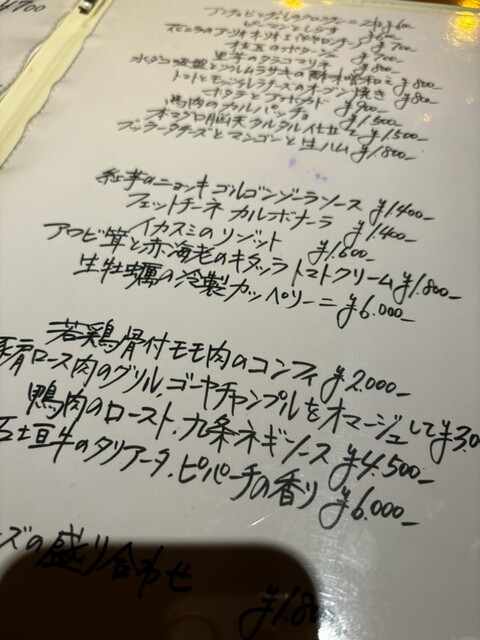 ¥700
ピーマンとしらす
¥700
¥700
里芋のタラコマリネ ¥800
の酢味噌和え ¥800
トマトとモッツァレラチーズのオーブン焼き ¥800
ホタテ ¥900
馬肉のカルパッチョ ¥1.500
本マグロ脳天タルタル仕立て ¥1.500
ブッラータチーズとマンゴーと生ハム ¥1.800
紅芋のニョッキ ゴルゴンゾーラソース ¥1.400
フェットチーネ カルボナーラ ¥1.400
イカスミのリゾット ¥1.600
アワビ茸と赤海老のキタッラ トマトクリーム ¥1.800
生牡蠣の冷製カッペリーニ ¥6.000
若鶏骨付モモ肉のコンフィ ¥2.000
肩ロース肉のグリル,ゴーヤチャンプルをオマージュして ¥3.0
鴨肉のロースト,九条ネギソース ¥4.500
石垣牛のタリアータ,ピパーチの香り ¥6.000
ズの盛り合わせ ¥1.80